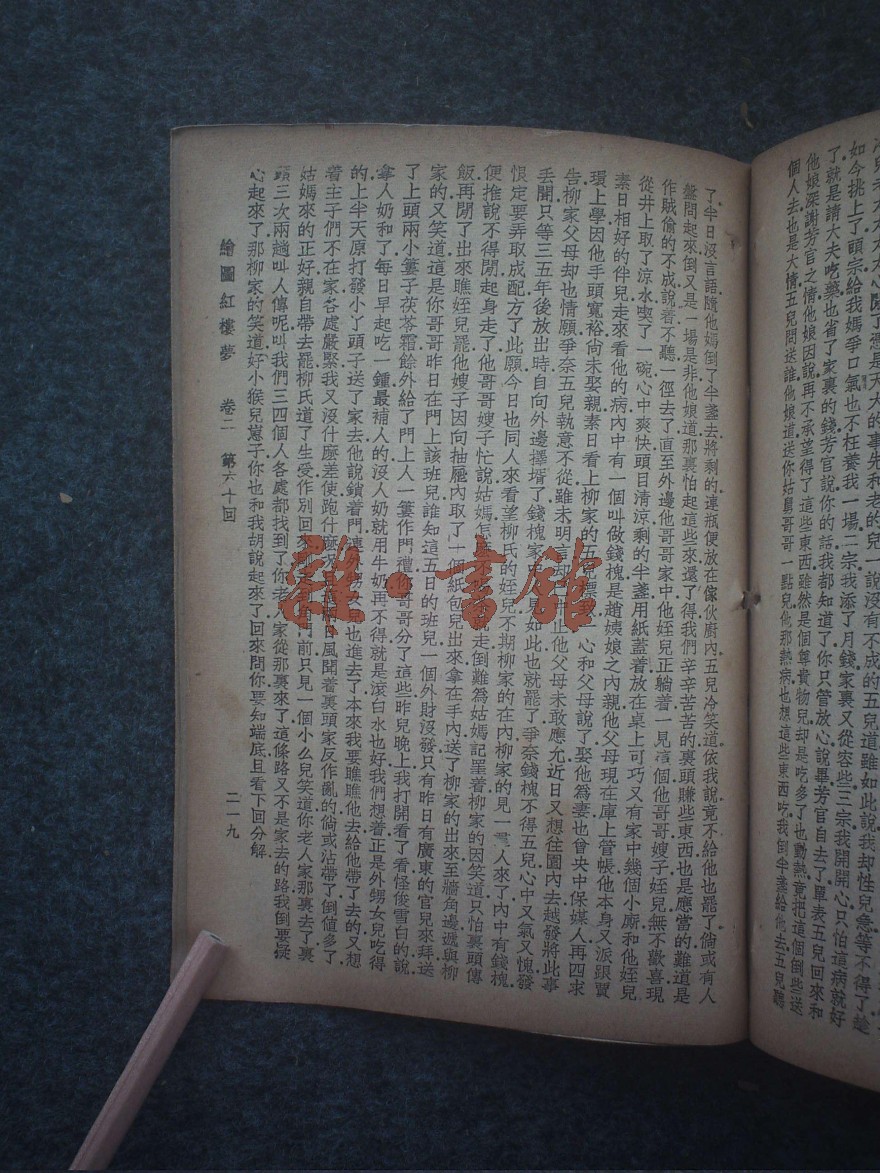 心開了憑是天大的事先和老的兒一說沒有不成的五兒道雖如此說我却性兒急等不得了趁
如今挑上了頭宗給我媽爭口氣也不枉養我一場二宗我添了月錢家裏又從容些三宗我開開心只怕這病就好
了就是請大夫吃藥也省了家裏的錢芳官說你的話我都知道了你只管放心說畢芳官自去了單表五兒回來和
他娘深謝芳官之情他娘因說再不承望得了這些東西雖然是個尊貴物兒却是吃多了也動熱竟把這個倒些送
個人去也是大情五兒問送誰他娘道送你姑舅哥哥一點兒他那熱病也想這些東西吃我倒半盞給他去五兒聽
了半日沒言語隨他媽倒了半盞去將剩的連瓶便放在傢伙廚內五兒冷笑道依我說竟不給他也罷了倘或有人
盤問起來倒又是一場是非他娘道那裏怕起這些來還了得我們辛辛苦苦的裏頭賺些東西也是應當的難道是
作賊偷的不成說着不聽一徑去了直至外邊他哥哥家中他姪兒正躺着一見這個他哥哥嫂子姪兒無不歡喜現
從井上取了涼水喫了一碗心中爽快頭目清涼剩的半盞用紙蓋着放在桌上可巧又有家中幾個小廝和他姪兒
素日相好的伴兒走來看他的病內中有一個叫做錢槐是趙姨娘之內親他父母現在庫上管帳他本身又派跟賈
環上學因他手頭寬裕尚未娶親素日看上柳家的五兒標致心和父母說了娶他為妻也曾央中保媒人再四求
告柳家父母却也情願爭奈五兒執意不從雖未明言却中止他父母未敢應允近日又想往園內去越發將此事
丟開只等三五年後放出時自向外邊擇壻了錢槐家中見如此也就罷了爭奈錢槐不得五兒心中又氣又愧發
恨定要弄取成配方了此願今日也同人來看望柳氏的姪兒不期柳家的在內柳家的見一羣人來了內中有錢槐
便推說不得閒起身走了他哥哥嫂子忙說姑媽怎走倒難為姑媽記罣着柳家的因笑道只怕裏頭傳
飯再閒了出來瞧姪兒罷他嫂子因向抽屜內取了一個紙包兒出來拿在手內送了柳家的出來至牆角邊遞與柳
家的又笑道這是你哥哥昨日在門上該班兒誰知這五日的班兒一個外財沒發只有昨日有廣東的官兒來拜送
了上頭兩小簍子茯苓霜餘外給了門上人一簍作門禮你哥哥分了這些昨兒晚上我打開看了看怪俊雪白的說
拿人奶和了每日早起吃一鍾最補人的沒人奶就用牛奶再不得就是滾白水也好我們想着正是外甥女兒吃得
的上半天原打發小丫頭子送了家去他說鎖着門連外甥女兒也進去了本來我要瞧瞧他去給他帶了去的又想
着主子們不在家各處嚴緊我又沒什麼差使跑什麼況日風聞着裏頭家反作亂的倘或沾帶了倒值多了
姑媽來的正好親自帶去罷柳氏道了生受作別回來到門前只見一個小么兒笑道你老人家那裏去了裏
頭三次兩趟叫人傳呢叫我們三四個人各處都找到了你老人家從那裏來了這條路又不是家去的路我倒要疑
心起來了那柳家的笑道好小猴兒崽子你也和我胡說起來了回來問你要知端底且看下回分解
繪圖紅樓夢　卷二　第六十回　二一九
雜·書館